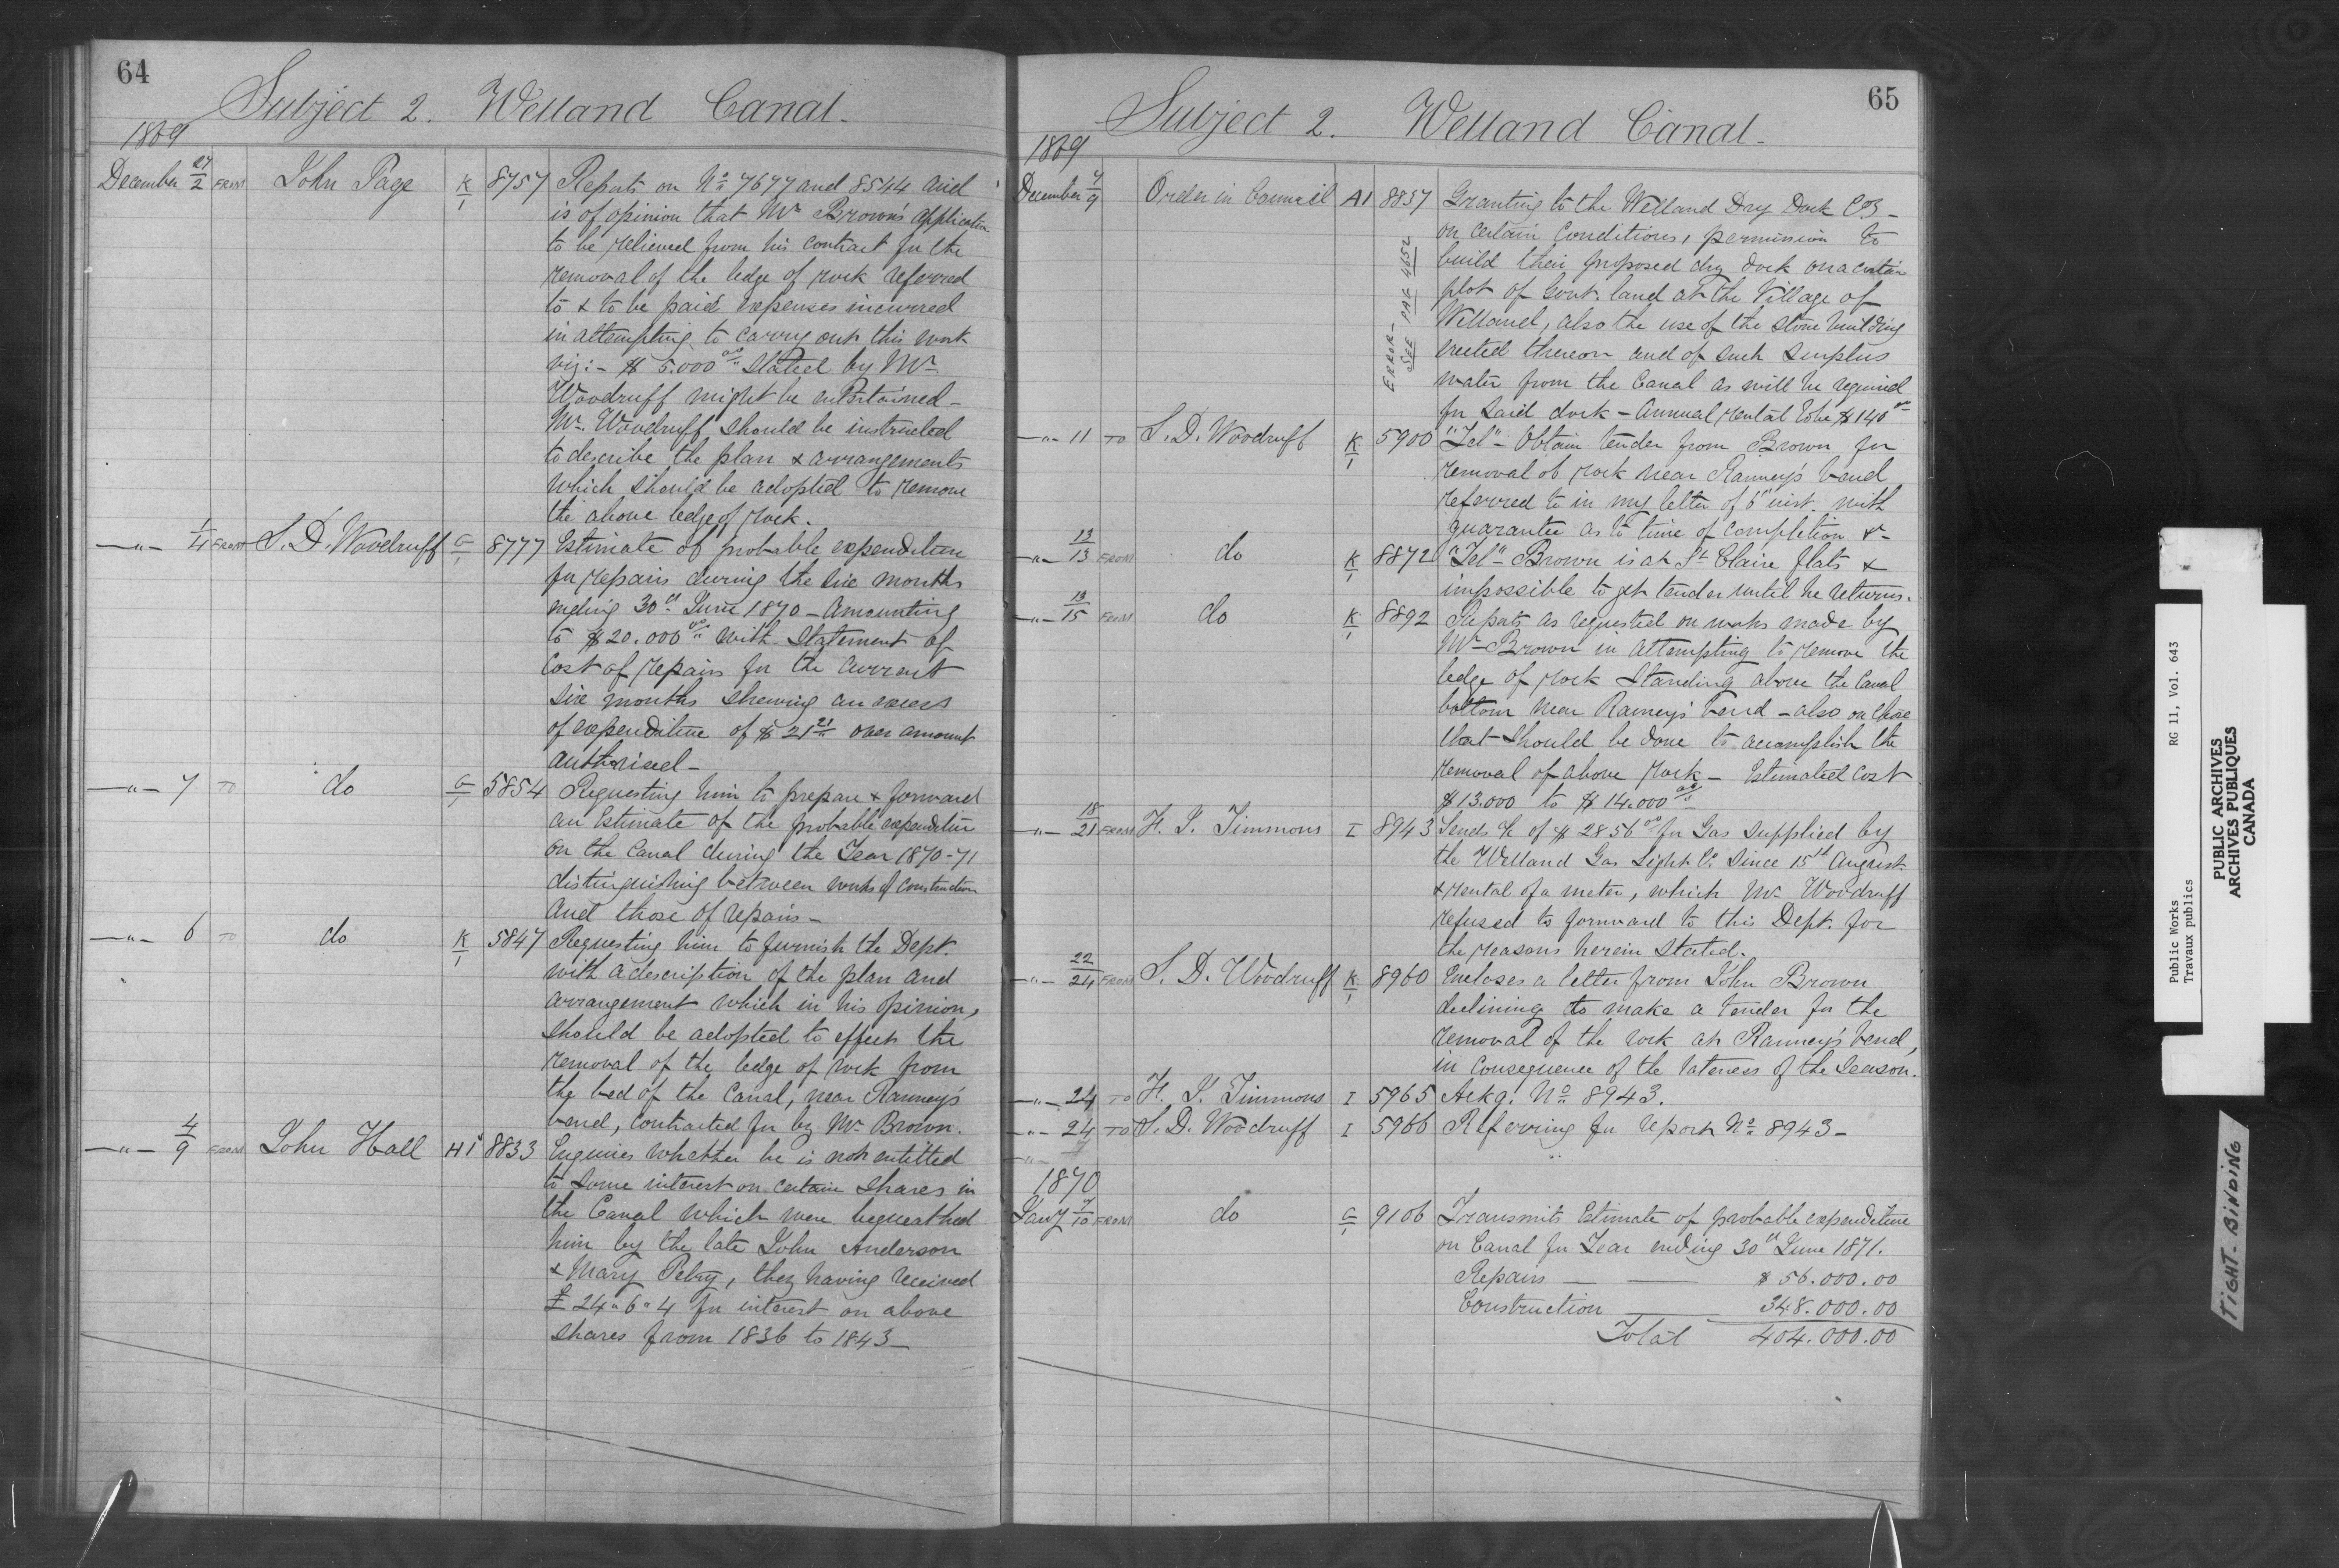 64
Subject 2. Welland Canal.
1869
December 27/2 FROM John Page K/1 8757 Reports on No 7677 and 8544 and
is of opinion that Mr Brown's application
to be relieved from his contract for the
removal of the ledge of rock referred
to & to be paid expenses incurred
in attempting to carry out this work
viz:- $ 5.000 00 stated by Mr
Woodruff might be entertained -
Mr. Woodruff should be instructed
to describe the plan & arrangements
which should be adopted to remove
the above ledge of rock.
—"— 1/4 FROM S. D. Woodruff G/1 8777 Estimate of probable expenditure
for repairs during the six months
ending 30th June 1870 - Amounting
to $20.000 00 with Statement of
Cost of repairs for the current
six months shewing an excess
of expenditure of $ 21 21 over amount
authorised -
—"— 7 TO do G/1 5854 Requesting him to prepare & forward
an Estimate of the probable expenditure
on the Canal during the Year 1870-71
distinguishing between works of construction
and those of repairs -
—"— 6 TO do K/1 5847 Requesting him to furnish the Dept.
with a description of the plan and
arrangement which in his opinion,
should be adopted to effect the
removal of the ledge of rock from
the bed of the Canal, near Ranney's
bend, contracted for by Mr Brown.
—"— 4/9 FROM John Hall H1 8833 Enquires whether he is not entitled
to some interest on certain shares in
the Canal which were bequeathed
him by the late John Anderson
& Mary Petry, they having received
£ 24"6"4 for interest on above
shares from 1836 to 1843 -
65
Subject 2. Welland Canal.
1869
December 7/9 Order in Council A1 8837 Granting to the Welland Dry Dock Co -
on certain conditions, permission to
build their proposed dry dock on a certain
plot of Govt. land at the Village of
Welland, also the use of the stone building
erected thereon and of such surplus
water from the Canal as will be required
for said dock - Annual rental to be $140 00
ERROR -
SEE PAG 4652
—"— 11 TO S. D. Woodruff K/1 5900 "Tel" - Obtain tender from Brown for
removal of rock near Ranney's bend
referred to in my letter of 6th inst. with
guarantee as to time of completion &c
—"— 13/13 FROM do K/1 8872 "Tel" Brown is at St Claire flats &
impossible to get tender until he returns.
—"— 13/15 FROM do K/1 8892 Reports as requested on works made by
Mr Brown in attempting to remove the
ledge of rock standing above the Canal
bottom near Ranney's bend - also on those
that should be done to accomplish the
removal of above rock - Estimated Cost
$13.000 to $14.000 00
—"— 18/21 FROM H. S. Timmons I 8943 Sends a/c of $2856 00 for Gas supplied by
the Welland Gas Light Co since 15th August
& rental of a meter, which Mr Woodruff
refused to forward to this Dept. for
the reasons herein stated.
—"— 22/24 FROM S. D. Woodruff K/1 8960 Encloses a letter from John Brown
declining to make a tender for the
removal of the rock at Ranney's bend,
in consequence of the lateness of the Season.
—"— 24 TO H. S. Timmons I 5965 Ackg. No 8943.
—"— 24 TO S. D. Woodruff I 5966 Referring for report No 8943 -
1870
Jany 7/10 FROM do G/1 9106 Transmits Estimate of probable expenditure
on Canal for Year ending 30th June 1871.
Repairs — — $ 56.000.00
Construction — 348.000.00
Total 404.000.00
Public Works RG 11, Vol. 643
Travaux publics
PUBLIC ARCHIVES
ARCHIVES PUBLIQUES
CANADA
TIGHT-BINDING